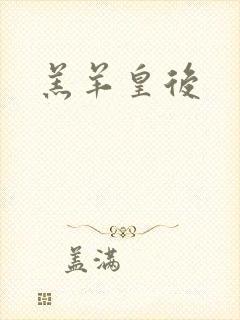 羔羊皇後
盖满